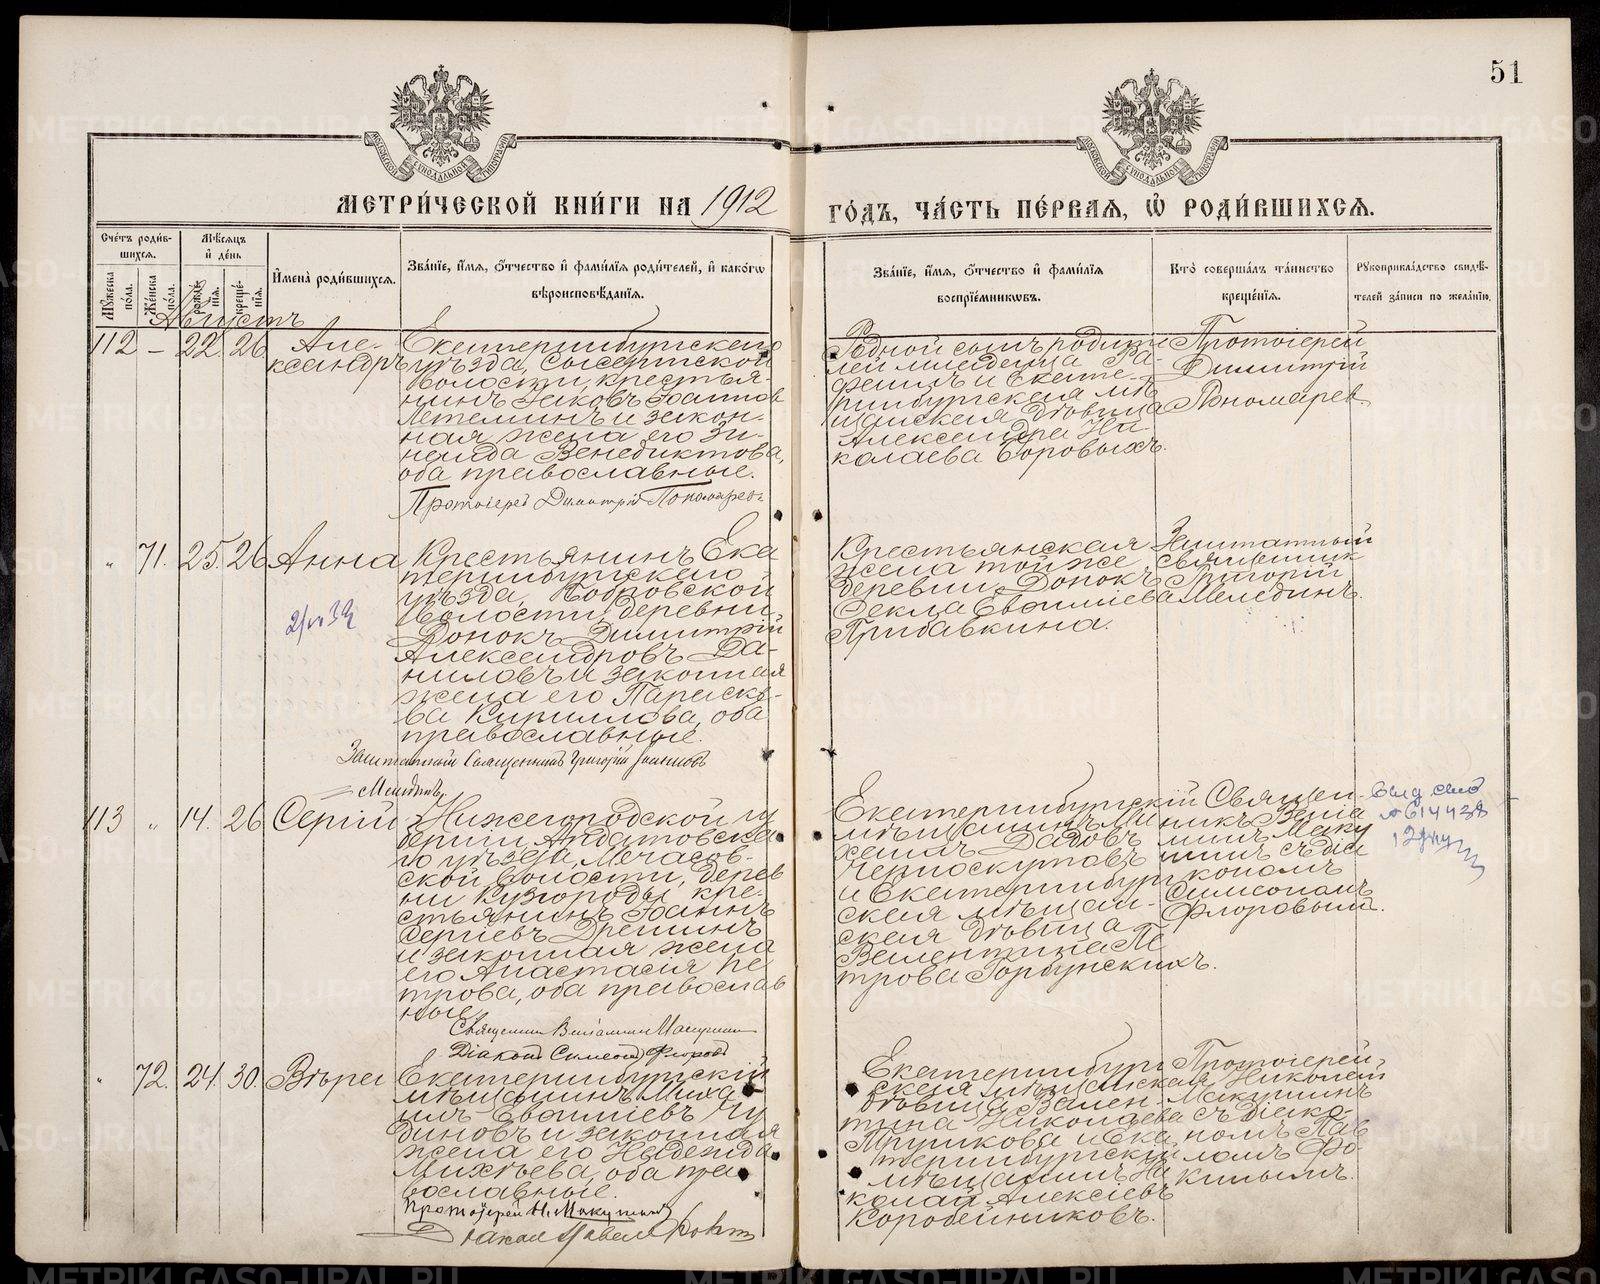 51
МЕТРИ́ЧЕСКОЙ КНИ́ГИ НА 1912 ГО́ДЪ, ЧА́СТЬ ПЕ́РВАЯ, Ѡ РОДИ́ВШИХСЯ.
Сче́тъ роди́в-
шихся.
Мꙋ́жеска по́ла.
Же́нска по́ла.
Мѣ́сяцъ и де́нь
рожде́нїя.
креще́нїя.
И́мена роди́вшихся.
Зва́нїе, и́мя, ѻ́тчество и фами́лїя роди́телей, и како́гѡ
вѣроисповѣ́данїя.
Зва́нїе, и́мя, ѻ́тчество и фами́лїя
воспрїе́мникѡвъ.
Кто̀ соверша́лъ та́инство
креще́нїя.
Рꙋкоприкла́дство свидѣ́-
телей за́писи по жела́нїю.
Августъ
112 – 22. 26.
Але-
ксандръ
Екатеринбургскаго
уѣзда, Сысертской
волости, крестья-
нинъ Іаковъ Іоаннов
Летеминъ и закон-
ная жена его Зи-
наида Венедиктова,
оба православные.
Протоіерей Димитрій Пономаревъ
Родной сынъ родите
лей младенца Ра-
фаилъ и Екате-
ринбургская мѣ
щанская дѣвица
Александра Ни
колаева Боровыхъ.
Протоіерей
Димитрій
Пономарев
" 71. 25. 26 Анна
Крестьянинъ Ека
теринбургскаго
уѣзда, Бобровской
волости, деревни
Фонокъ Димитрій
Александровъ Да-
ниловъ и законная
жена его Параске-
ва Кириллова, оба
православные.
Заштатный Священникъ Григорій Іоанновъ
Мелединъ.
Крестьянская
жена той же
деревни Фонокъ
Фекла Евфиміева
Прибавкина.
Заштатный
священник
Григорій
Мелединъ.
113 " 14. 26 Сергій
Нижегородской гу
берніи Ардатовска
го уѣзда, Мечасов-
ской волости, дерев
ни Кузгороды кре-
стьянинъ Іоаннъ
Сергіевъ Дреминъ
и законная жена
его Анастасія Пе
трова, оба православ
ные.
Священник Веніамин Макушин
Діаконъ Симеонъ Флоровъ
Екатеринбургскій
мѣщанинъ Ми
хаилъ
Черноскутовъ
и Екатеринбург
ская мѣщан-
ская дѣвица
Валентина Пе
трова Горбунскихъ.
Священ-
никъ Веніа
минъ Маку
шинъ съ діа
кономъ
Симеономъ
Флоровымъ.
выд. свид
№ 614438
" 72. 24. 30. Вѣра
Екатеринбургскій
мѣщанинъ Миха
илъ Евфиміевъ Чу
диновъ и законная
жена его Надежда
Михѣева, оба пра
вославные.
Протоіерей Н. Макушинъ
Діакон Павел Фокин
Екатеринбург
ская мѣщанская
дѣвица Вален-
тина Николаева
Трушкова и Ека
теринбургскій
мѣщанинъ Ни
колай Алексіевъ
Коробейниковъ.
Протоіерей
Николай
Макушинъ
съ діако-
номъ Пав
ломъ Фо-
кинымъ.